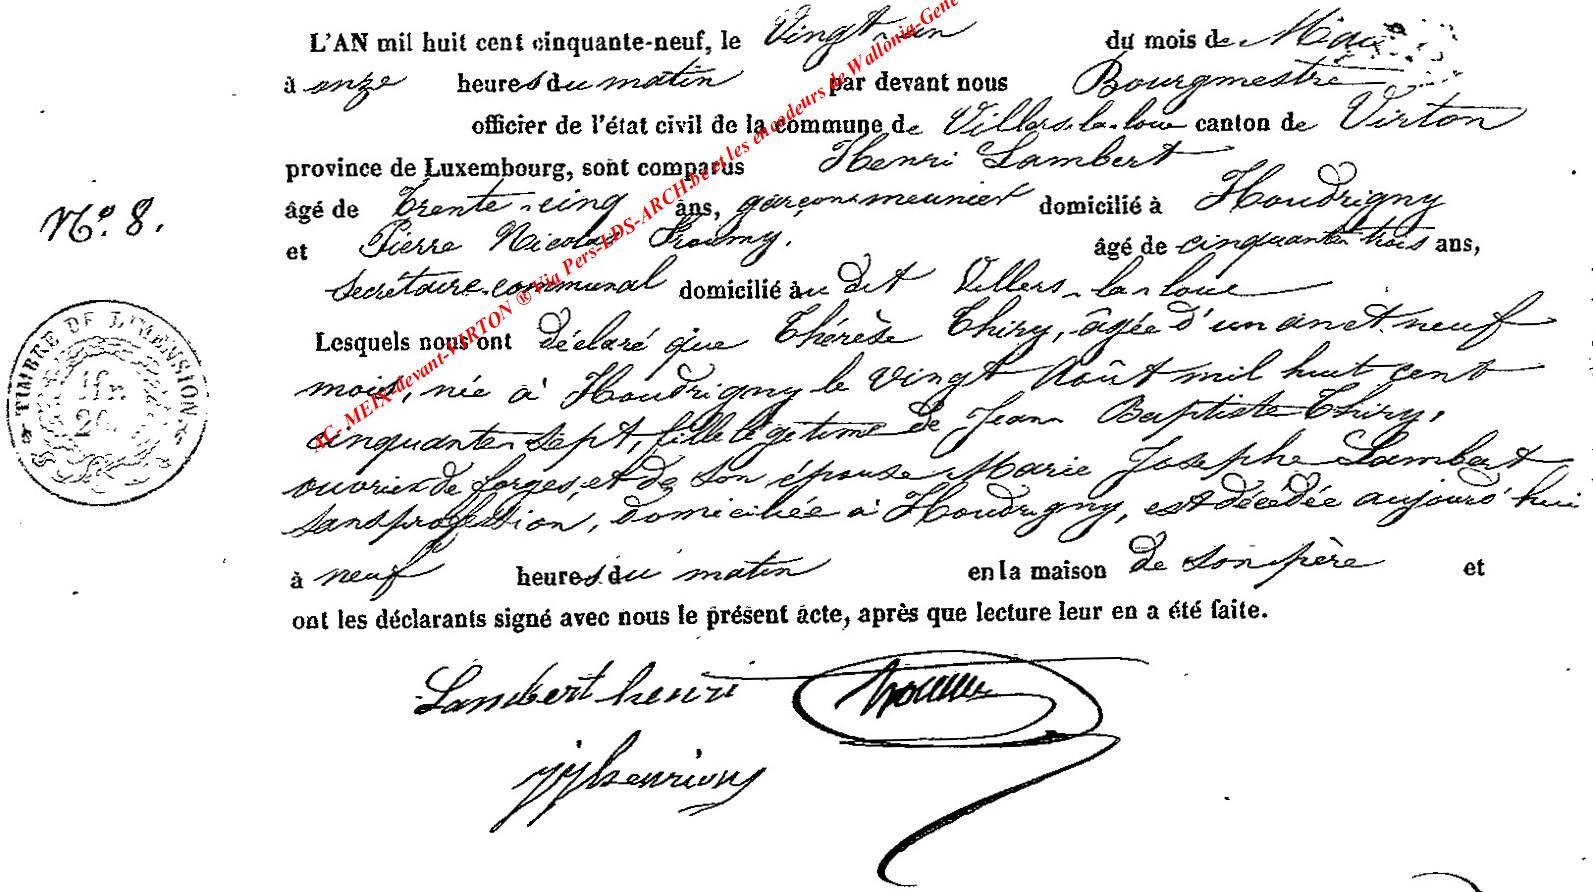 L'AN mil huit cent cinquante-neuf, le Vingt-un du mois de Mai
à onze heures du matin par devant nous Bourgmestre
officier de l'état civil de la commune de Villers-la-loue canton de Virton
province de Luxembourg, sont comparus Henri Lambert
N°. 8.
âgé de trente-cinq ans, garçon meunier domicilié à Houdrigny
et Pierre Nicolas âgé de cinquante trois ans,
Secrétaire communal domicilié au dit Villers-la-loue
Lesquels nous ont déclaré que Thérèse Thiry, âgée d'un an et neuf
mois, née à Houdrigny le vingt Août mil huit cent
cinquante-sept, fille légitime de Jean Baptiste Thiry,
ouvrier de forges, et de son épouse Marie Josephe Lambert
sans profession, domiciliée à Houdrigny, est décédée aujourd'hui
à neuf heures du matin en la maison de son père et
ont les déclarants signé avec nous le présent acte, après que lecture leur en a été faite.
Lambert henri
jjhenrion
TIMBRE DE DIMENSION
AC- MEIX-devant-VIRTON ® Via Pers-LDS-ARCH.be et les encodeurs de Wallonia-Gene